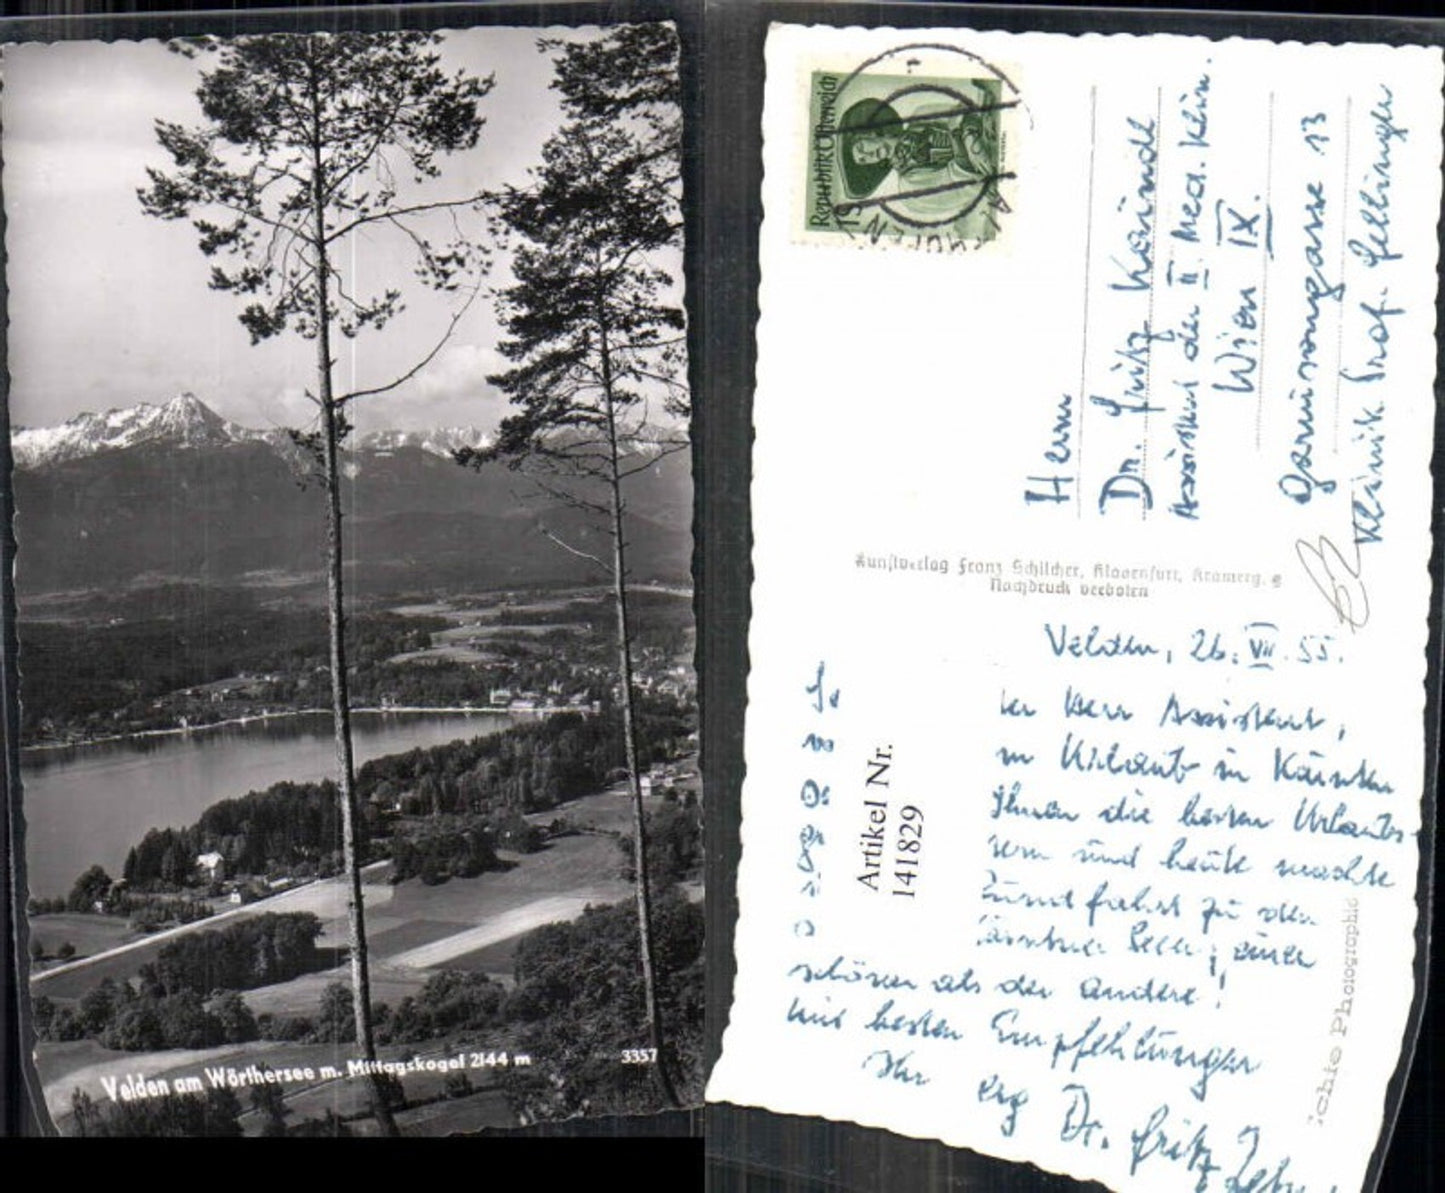 Velden am Wörthersee m. Mittagskogel 2144 m
3357
Republik Österreich
Herrn
Dr. Fritz Kaindl
Assistent der II. Med. Klin.
Wien IX.
Garnisongasse 13
Klinik Prof. Fellinger
Kunstverlag Franz Schilcher, Klagenfurt, Kramerg.
Nachdruck verboten
Velden, 26. VII. 55.
Herr Assistent,
Urlaub in Kärnten
Ihnen die besten Urlaubs
und heute machte
fahrt zu den
Seen; einer
schöner als der andere!
Mit besten Empfehlungen
Ihr erg Dr. Fritz
Artikel Nr.
141829